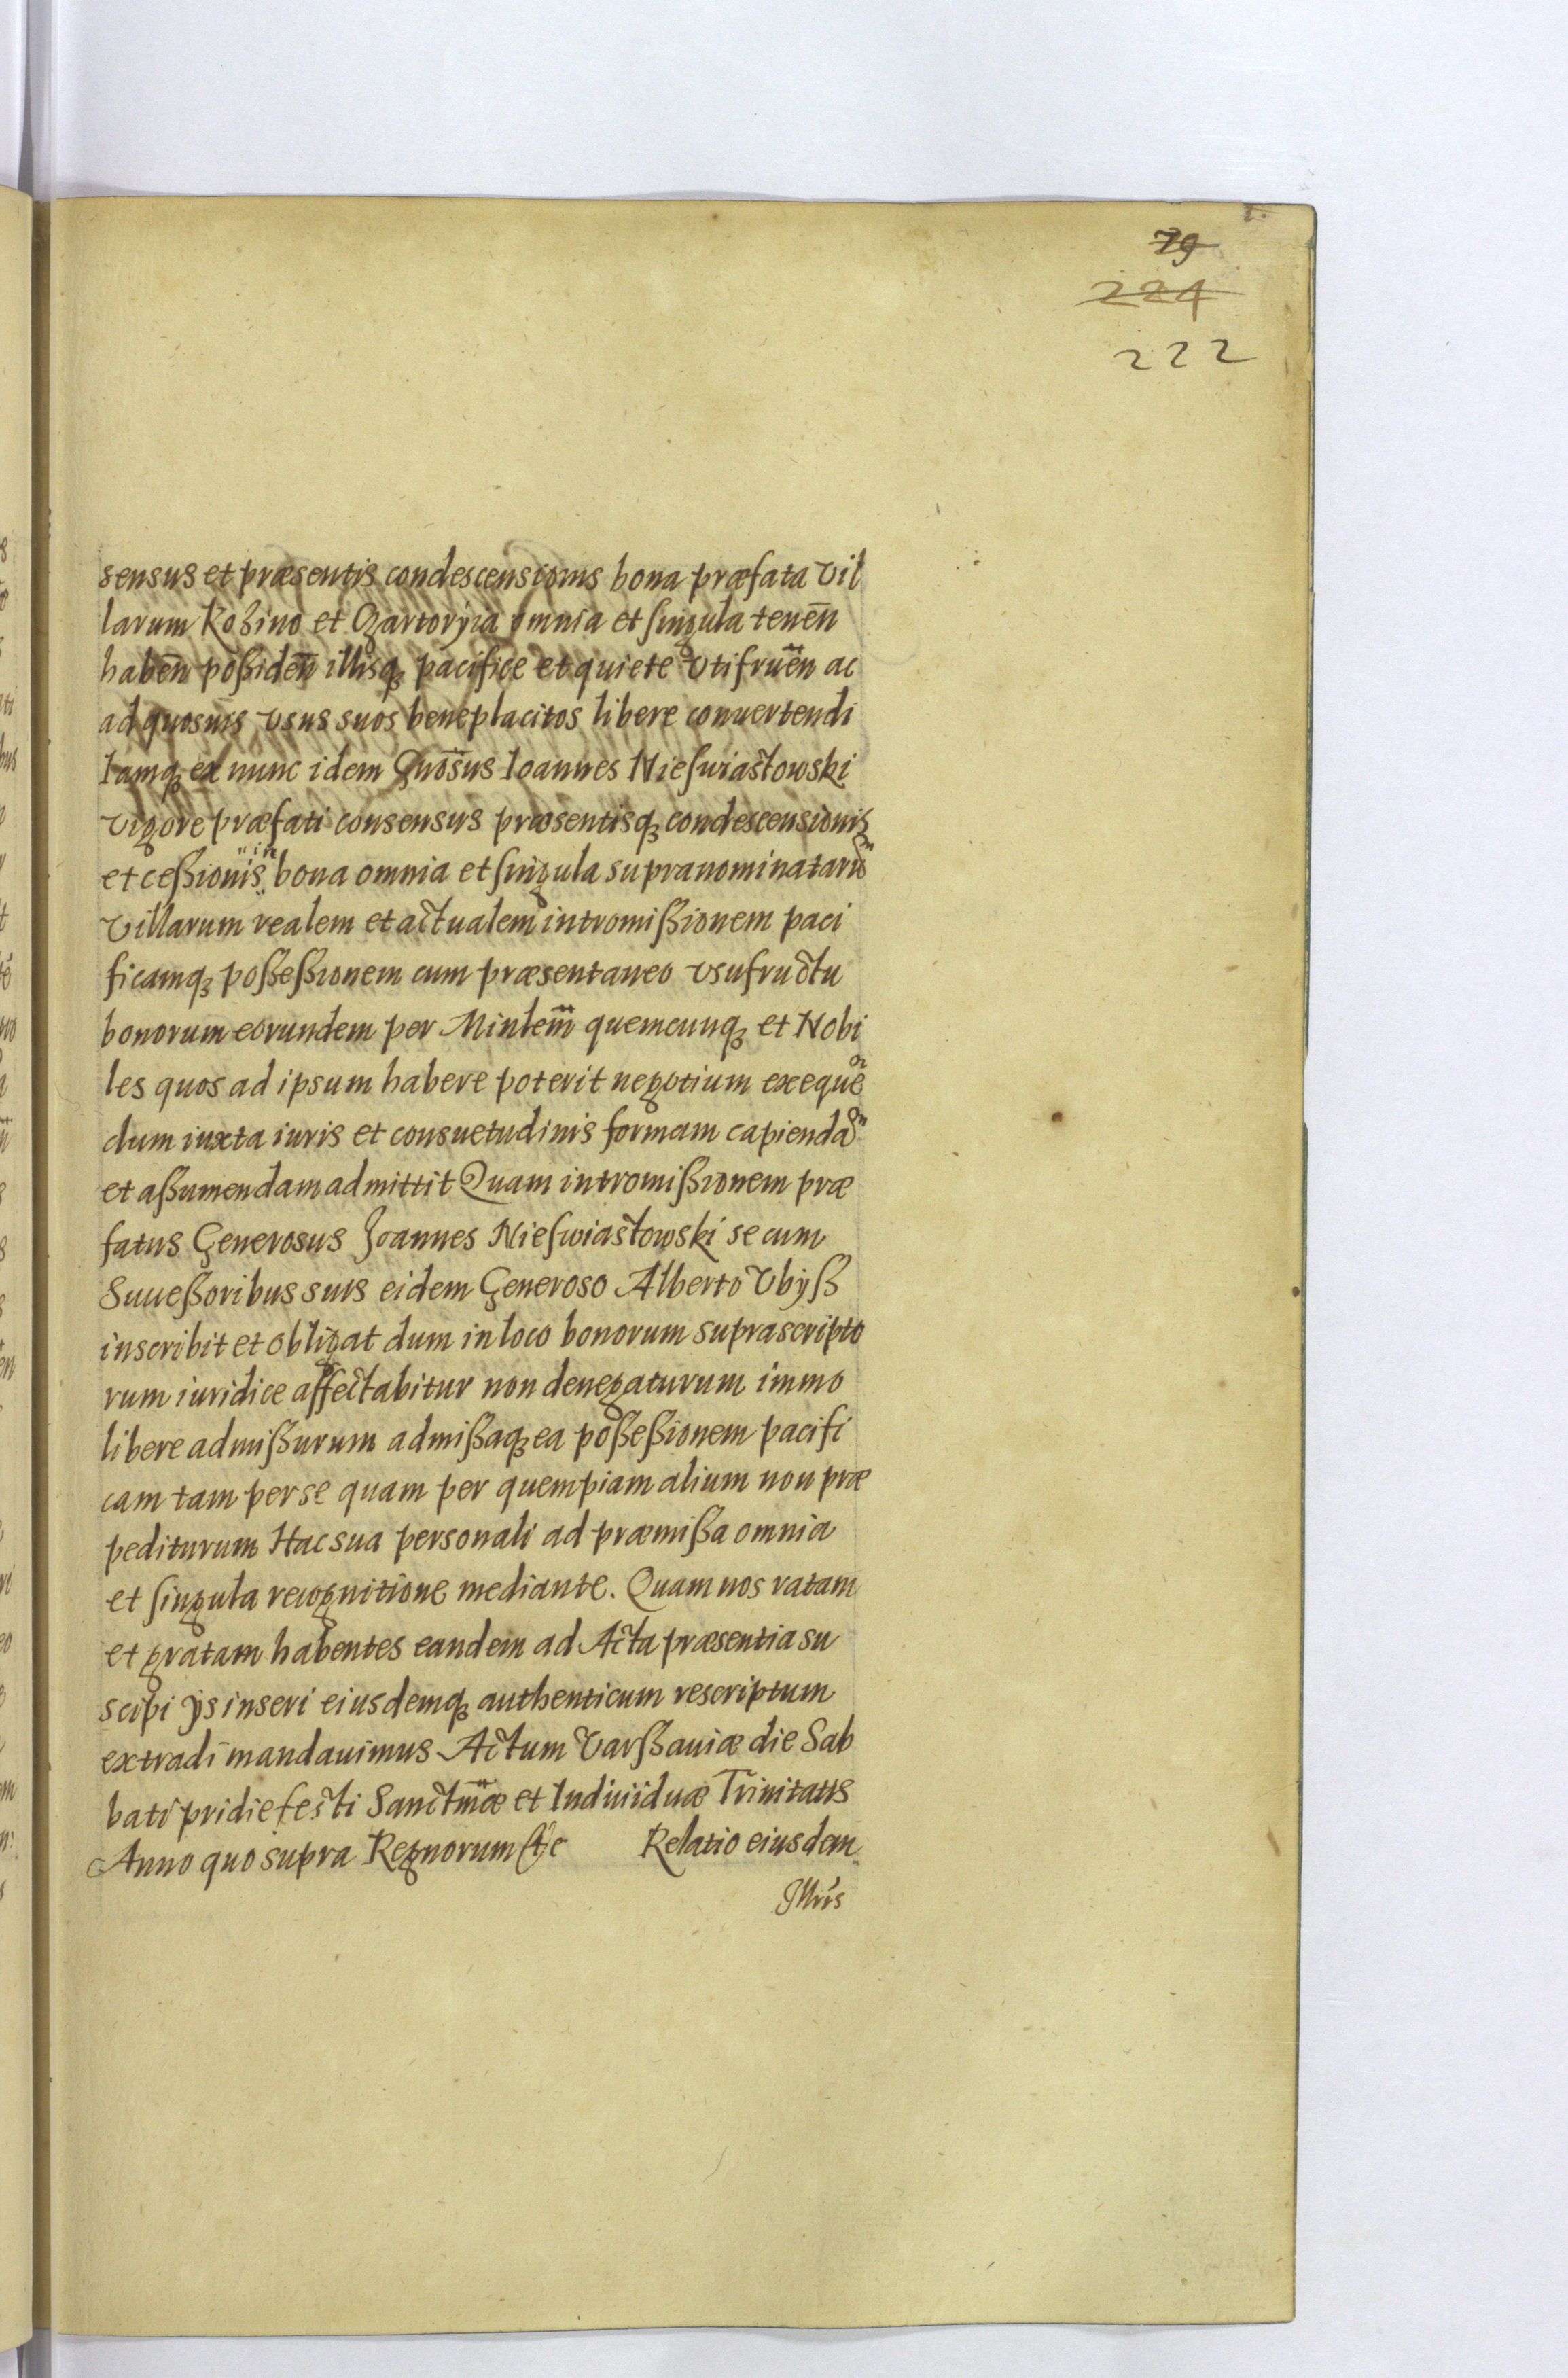 79
224
222
sensus et præsentis condescensionis bona præfata Vil
larum Kozino et Czartoryia omnia et singula tenen̄
haben̄ poßiden̄ illisq₃ pacifice et quiete Vtifruen̄ ac
ad quosuis vsus suos beneplacitos libere conuertendi
Iamq₃ ex nunc idem Gnōsus Ioannes Nieswiastowski
vigore præfati consensus præsentisq₃ condescensionis
et ceßionis in bona omnia et singula supranominatarū
Villarum realem et actualem intromißionem paci
ficamq₃ poßeßionem cum præsentaneo vsufructu
bonorum eorundem per Minlem̄ quemcunq₃ et Nobi
les quos ad ipsum habere poterit negotium exequē
dum iuxta iuris et consuetudinis formam capiendā
et aßumendam admittit Quam intromißionem præ
fatus Generosus Joannes Nieswiastowski se cum
Succeßoribus suis eidem Generoso Alberto Vbÿß
inscribit et obligat dum in loco bonorum suprascripto
rum iuridice affectabitur non denegaturum immo
libere admißurum admißaq₃ ea poßeßionem pacifi
cam tam per se quam per quempiam alium non præ
pediturum Hac sua personali ad præmißa omnia
et singula recognitione mediante. Quam nos ratam
et gratam habentes eandem ad Acta præsentia su
scipi ÿs inseri eiusdemq₃ authenticum rescriptum
extradi mandauimus Actum Varßauiæ die Sab
bati pridie festi Sanctm̄æ et Indiuiduæ Trinitatis
Anno quo supra Regnorum &c Relatio eiusdem
Illris